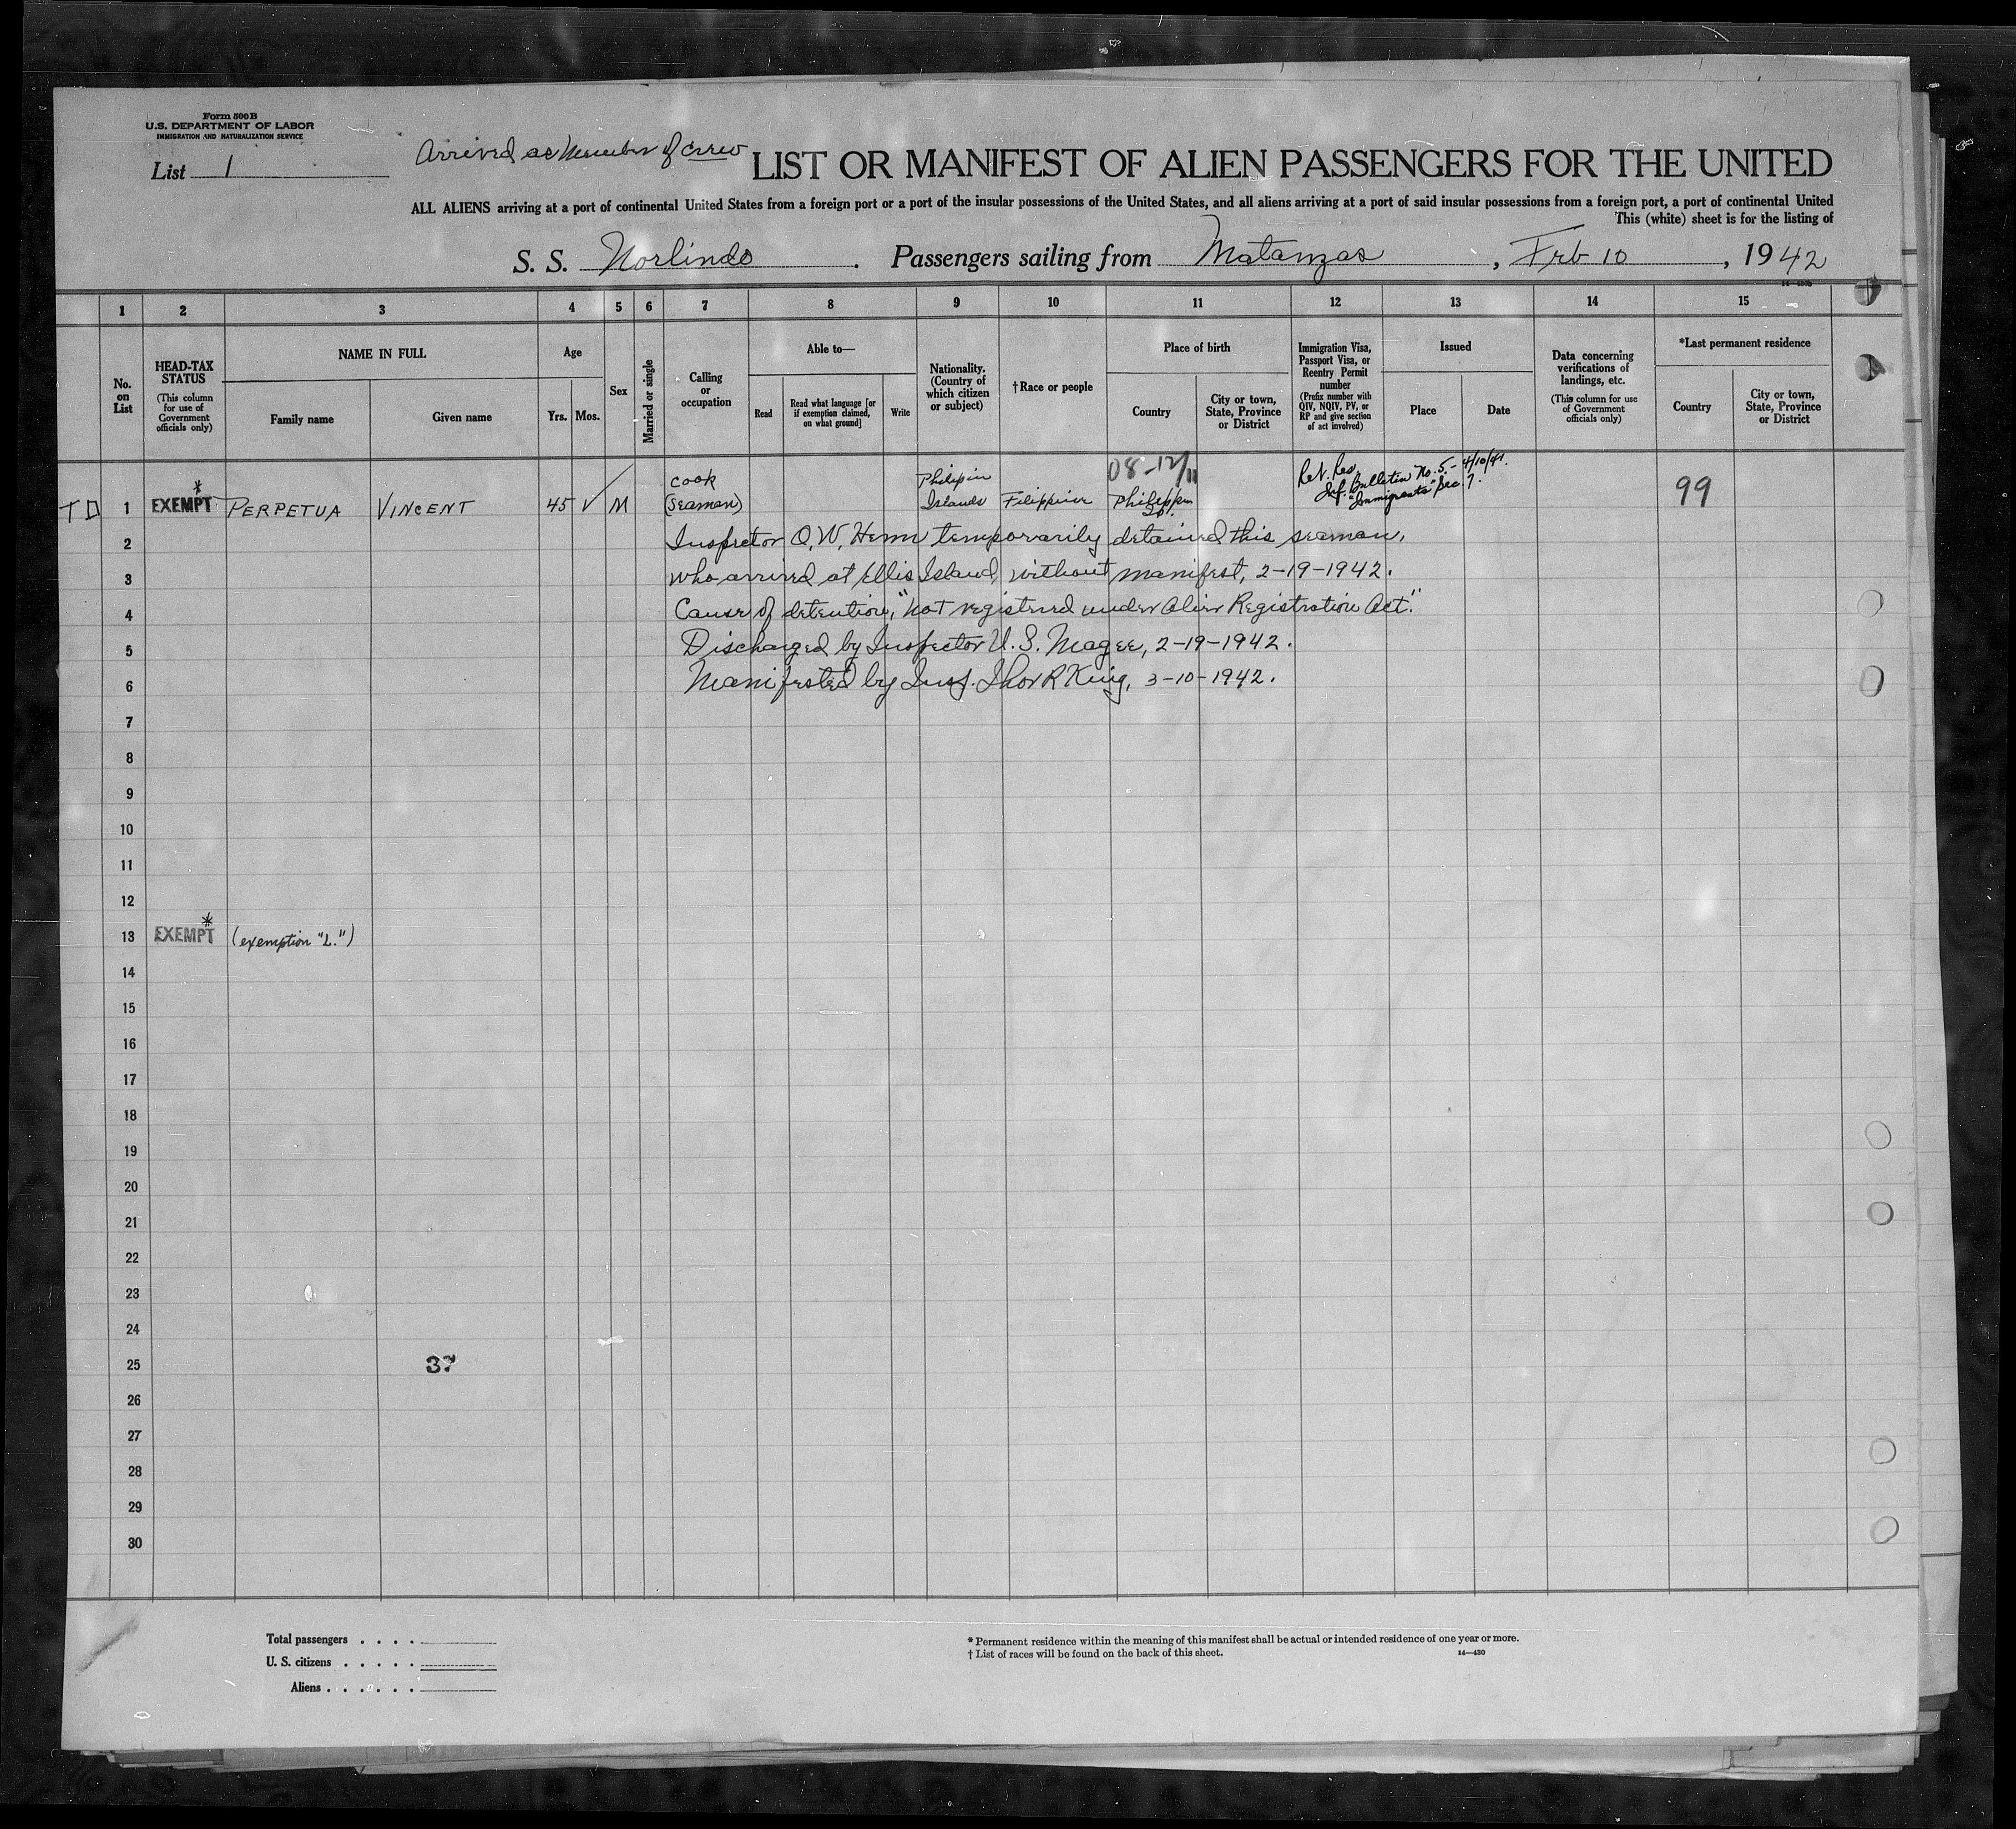 Form 500B
U.S. DEPARTMENT OF LABOR
IMMIGRATION AND NATURALIZATION SERVICE
List 1
Arrived as Member of crew
LIST OR MANIFEST OF ALIEN PASSENGERS FOR THE UNITED
ALL ALIENS arriving at a port of continental United States from a foreign port or a port of the insular possessions of the United States, and all aliens arriving at a port of said insular possessions from a foreign port, a port of continental United
This (white) sheet is for the listing of
S. S. Norlindo . Passengers sailing from Matanzas , Feb 10 , 1942
1 2 3 4 5 6 7 8 9 10 11 12 13 14 15
No. on List
HEAD-TAX STATUS (This column for use of Government officials only)
NAME IN FULL
Family name
Given name
Age
Yrs.
Mos.
Sex
Married or single
Calling or occupation
Able to—
Read
Read what language [or if exemption claimed, on what ground]
Write
Nationality. (Country of which citizen or subject)
†Race or people
Place of birth
Country
City or town, State, Province or District
Immigration Visa, Passport Visa, or Reentry Permit number (Prefix number with QIV, NQIV, PV, or RP and give section of act involved)
Issued
Place
Date
Data concerning verifications of landings, etc. (This column for use of Government officials only)
*Last permanent residence
Country
City or town, State, Province or District
08-12/11
TD 1 EXEMPT * PERPETUA VINCENT 45 ✓ M cook (seaman) Philipin Islands Filippino Philippin Isl. Ret. Res. Inf. Bulletin No. 5.- 4/10/41. "Immigrants" Sec. 7. 99
2 Inspector O. W. Henn temporarily detained this seaman,
3 who arrived at Ellis Island, without manifest, 2-19-1942.
4 Cause of detention, "not registered under Alien Registration Act."
5 Discharged by Inspector U. S. Magee, 2-19-1942.
6 Manifested by Insp. Thor R King, 3-10-1942.
7
8
9
10
11
12
13 EXEMPT * (exemption "L.")
14
15
16
17
18
19
20
21
22
23
24
25 37
26
27
28
29
30
Total passengers . . . .
U. S. citizens . . . . .
Aliens . . . . . .
* Permanent residence within the meaning of this manifest shall be actual or intended residence of one year or more.
† List of races will be found on the back of this sheet.
14—430